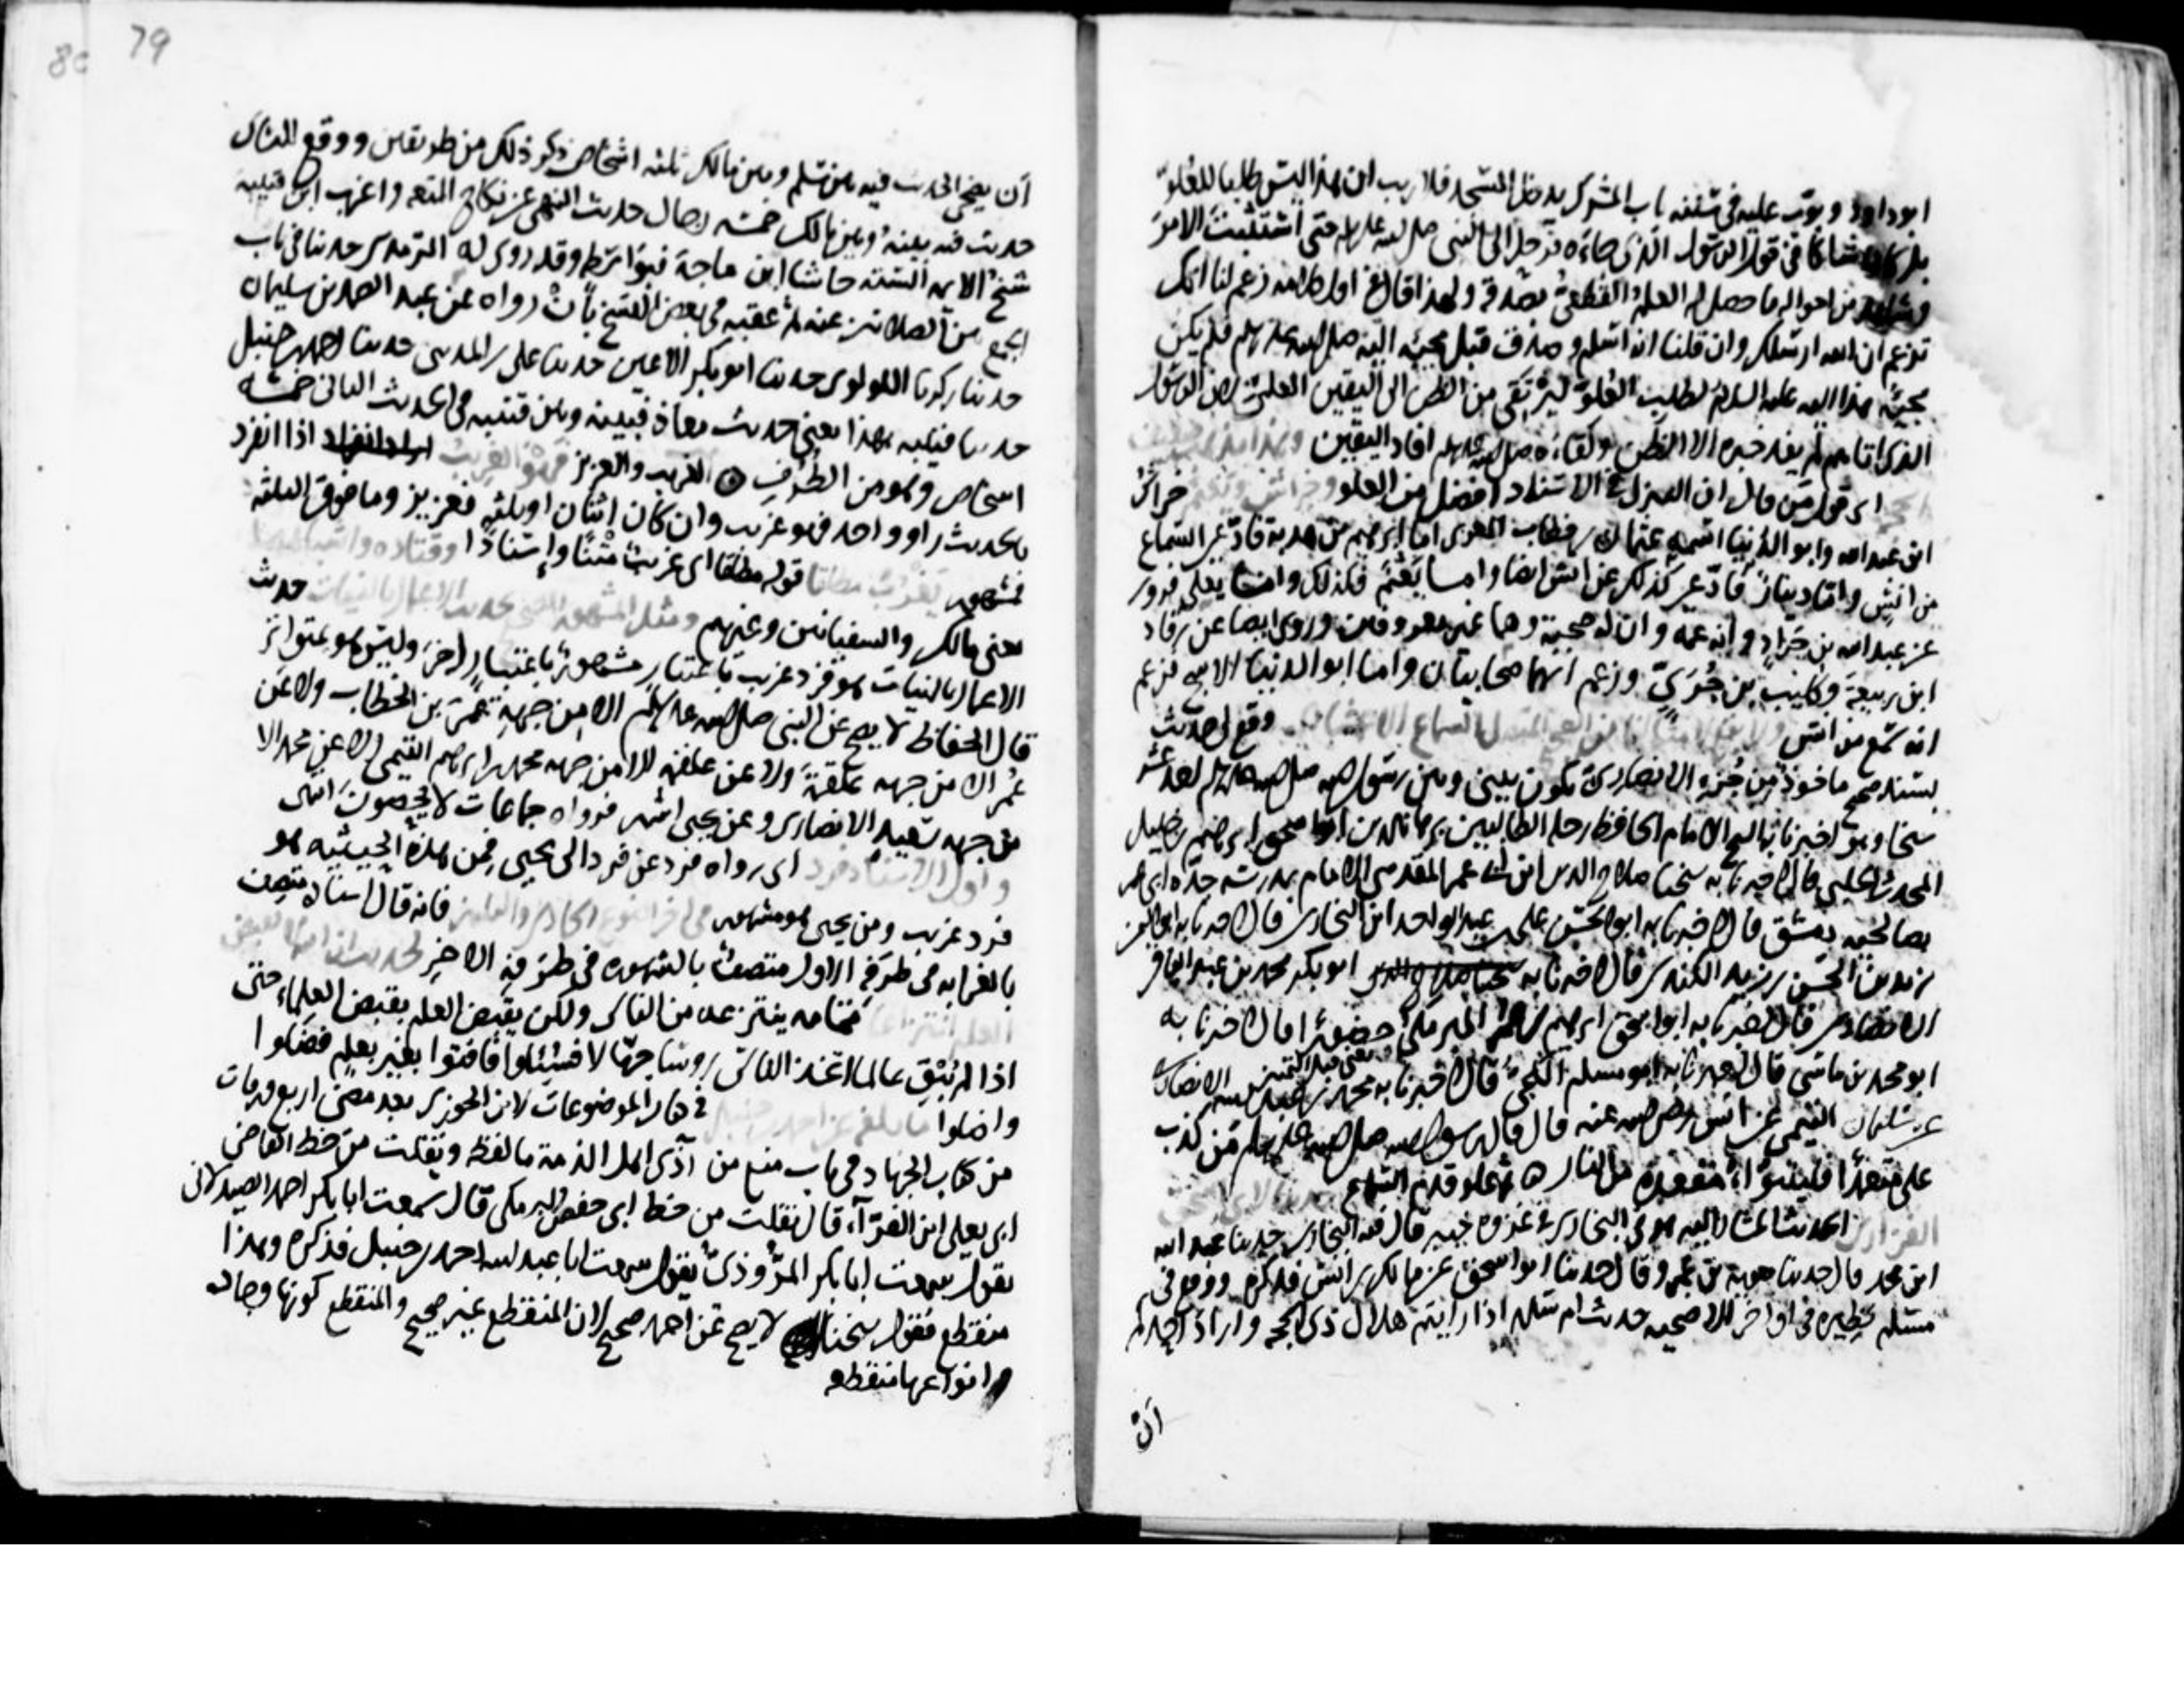 ابو داود وبوب عليه في سننه باب المشرك يدخل المسجد فلا ريب ان هذا ليس طلبا للعلو
بل كان شاكا في قول الرسول الذي جاءه فرحل الى النبي صلى الله عليه وسلم حتى استثبت الامر
وشاهد من احواله ما حصل له العلم القطعي بصدقه ولهذا قال في اول كلامه زعم لنا انك
تزعم ان الله ارسلك وان قلنا انه اسلم وصدق قبل مجيئه اليه صلى الله عليه وسلم فلم يكن
مجيئه هذا اليه عليه السلام لطلب العلو ليرتقي من الظن الى اليقين العلي لان الرسول
الذي اتاهم لم يفد خبره الا الظن ولقاءه صلى الله عليه وسلم افاد اليقين
اي قول من قال ان النزول في الاسناد افضل من العلو وخراش ونعيم خراش
ابن عبد الله وابو الدنيا اسمه عثمان بن خطاب المغربي اما ابرهيم بن هدبة فادعى السماع
من انس واما دينار فادعى كذلك عن انس ايضا واما نعيم فكذلك واما يعلى فروى
عن عبد الله بن جراد وانه عمه وان له صحبة وهما غير معروفين وروى ايضا عن رقاد
ابن ربيعة وكليب بن جري وزعم انهما صحابيان واما ابو الدنيا الاشج فزعم
انه سمع من انس وقع لي حديث
بسند صحيح ماخوذ من جزء الانصاري يكون بيني وبين رسول الله صلى الله عليه وسلم احد عشر
شخا وهو اخبرنا به الشيخ الامام الحافظ رحلة الطالبين برهان الدين ابو اسحق ابرهيم بن خليل
المحدث الحلبي قال اخبرنا به شيخنا صلاح الدين ابن ابي عمر المقدسي الامام بمدرسة جده ابي عمر
بصالحية دمشق قال اخبرنا به ابو الحسن علي بن عبد الواحد ابن البخاري قال اخبرنا به ابو اليمن
زيد بن الحسن بن زيد الكندي قال اخبرنا به ابو بكر محمد بن عبد الباقي
الانصاري قال اخبرنا به ابو اسحق ابرهيم بن عمر البرمكي حضورا قال اخبرنا به
ابو محمد بن ماسي قال اخبرنا به ابو مسلم الكجي قال اخبرنا به محمد بن عبد الله الانصاري
عن سليمان التيمي عن انس رضي الله عنه قال قال رسول الله صلى الله عليه وسلم من كذب
علي متعمدا فليتبوأ مقعده من النار ثم علو قدم السماع
الحديث المشار اليه هو في البخاري في غزوة خيبر قال فيه البخاري حدثنا عبد الله
ابن محمد قال حدثنا معوية بن عمرو قال حدثنا ابو اسحق عن مالك بن انس فذكره ووقع في
مسلم نظيره في اواخر الاضحية حديث ام سلمة اذا رايتم هلال ذي الحجة واراد احدكم
ان
79
80
ان يضحي الحديث فيه بين مسلم وبين مالك ثلثة اشخاص ذكر ذلك من طريقين ووقع للنسائي
حديث فيه بينه وبين مالك خمسة رجال حديث النهي عن نكاح المتعة واغرب ابن قتيبة
شيخ الائمة الستة حاشا ابن ماجة فبواسطة وقد روى له الترمذي حديثا في باب
الجمع بين الصلاتين عنه ثم عقبه في بعض النسخ بان رواه عن عبد الصمد بن سليمان
حدثنا زكريا اللولوي حدثنا ابو بكر الاعين حدثنا علي بن المديني حدثنا احمد بن حنبل
حدثنا قتيبة بهذا يعني حديث معاذ فبينه وبين قتيبة في الحديث الثاني خمسة
اشخاص وهو من الطرف الغريب والعزيز فهو الغريب اذا انفرد
بالحديث راو واحد فهو غريب وان كان اثنان او ثلثة فعزيز وما فوق الثلثة
فمشهور تفرد مطلقا قوله مطلقا اي غريب متنا واسنادا وقتادة
يعني مالك والسفيانين وغيرهم ومثل المشهور حديث الاعمال بالنيات حديث
الاعمال بالنيات هو فرد غريب باعتبار مشهور باعتبار اخر وليس هو بمتواتر
قال الحفاظ لا يصح عن النبي صلى الله عليه وسلم الا من جهة عمر بن الخطاب ولا عن
عمر الا من جهة علقمة ولا عن علقمة الا من جهة محمد بن ابرهيم التيمي ولا عن محمد الا
من جهة سعيد الانصاري وعن يحيى اشتهر فرواه جماعات لا يحصون انتهى
واول الاسناد فرد اي رواه فرد عن فرد الى يحيى فمن هذه الحيثية هو
فرد غريب ومن يحيى هو مشهور فانه قال اسناده متصف
بالغرابة في طرفه الاول متصف بالشهرة في طرفه الاخر لحديث
العلم انتزاعا تمامه ينتزعه من الناس ولكن يقبض العلم بقبض العلماء حتى
اذا لم يبق عالما اتخذ الناس روسا جهالا فسئلوا فافتوا بغير علم فضلوا
واضلوا ما بلغ عن احمد بن حنبل في كتاب الموضوعات لابن الجوزي بعد مضي اربع ورقات
من كتاب الجهاد في باب منع من آذى اهل الذمة ما لفظه ونقلت من خط القاضي
ابي يعلى ابن الفراء قال نقلت من خط ابي حفص البرمكي قال سمعت ابا بكر احمد الصيدلاني
يقول سمعت ابا بكر المروذي يقول سمعت ابا عبد الله احمد بن حنبل فذكره وهذا
منقطع فقول شيخنا لا يصح عن احمد صحيح لان المنقطع غير صحيح والمنقطع كونها وجاده
وانواعها منقطعه